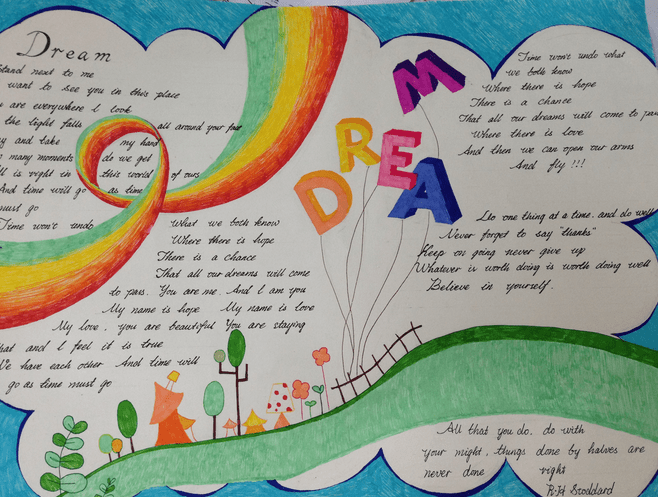 Dream
Stand next to me
want to see you in this place
are everywhere I look
the light falls all around your feet
and take my hand
many moments do we get
is right in this world of ours
And time will go as time
must go
Time won't undo What we both know
Where there is hope
There is a chance
That all our dreams will come
to pass. You are me. And I am you
My name is hope My name is love
My love, you are beautiful You are staying
that and I feel it is true
We have each other And time will
go as time must go
DREAM
Time won't undo what
we both know
Where there is hope
There is a chance
That all our dreams will come to
Where there is love
And then we can open our arms
And fly !!!
Do one thing at a time. and do well
Never forget to say "thanks"
Keep on going never give up
Whatever is worth doing is worth doing well
Believe in yourself.
All that you do, do with
your might, things done by halves are
never done right
R·H Stoddard